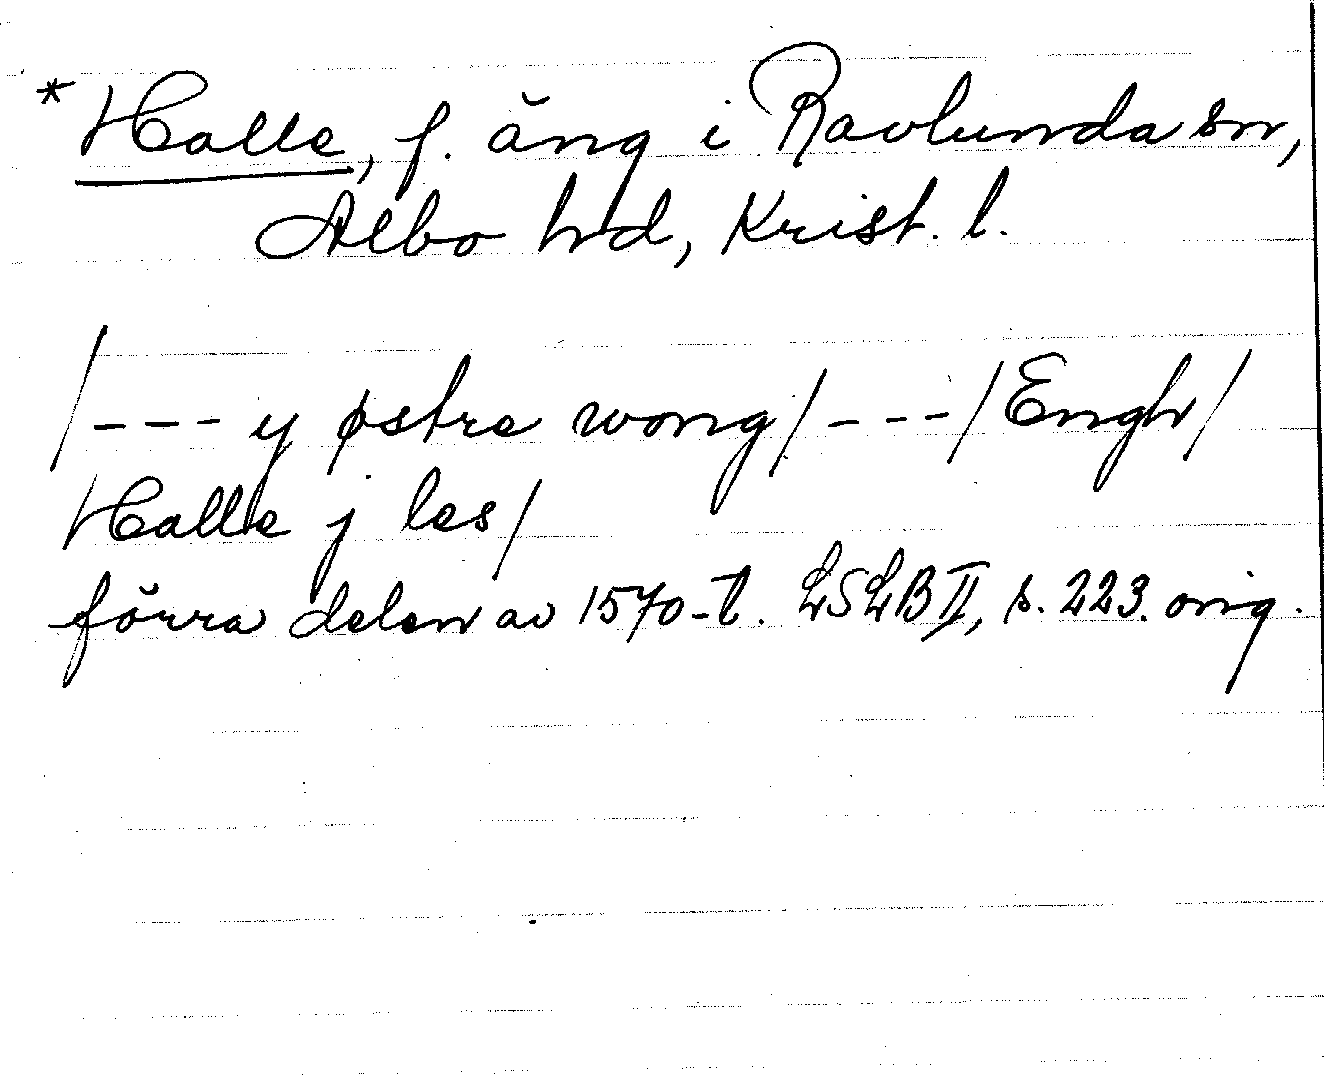 * Halle, f. äng i Ravlunda sn,
Albo hd, Krist. l.
/--- y østre wong/---/Engh/
Halle j les/
förra delen av 1570-t. LSLB II, s. 223. orig.